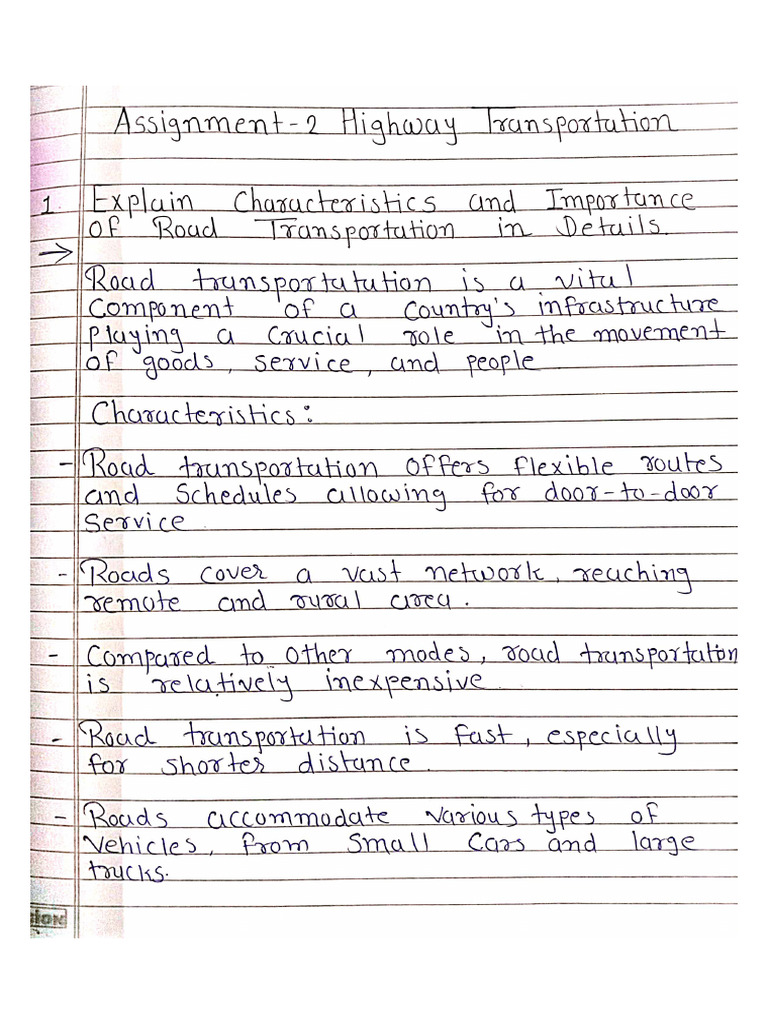 Assignment-2 Highway Transportation
1. Explain Characteristics and Importance
of Road Transportation in Details.
→
Road transportatution is a vital
component of a country's infrastructure
playing a crucial role in the movement
of goods, service, and people
Characteristics:
- Road transportation offers flexible routes
and schedules allowing for door-to-door
service
- Roads cover a vast network, reaching
remote and rural area.
- Compared to other modes, road transportation
is relatively inexpensive
- Road transportation is fast, especially
for shorter distance.
- Roads accommodate various types of
vehicles, from small cars and large
trucks.